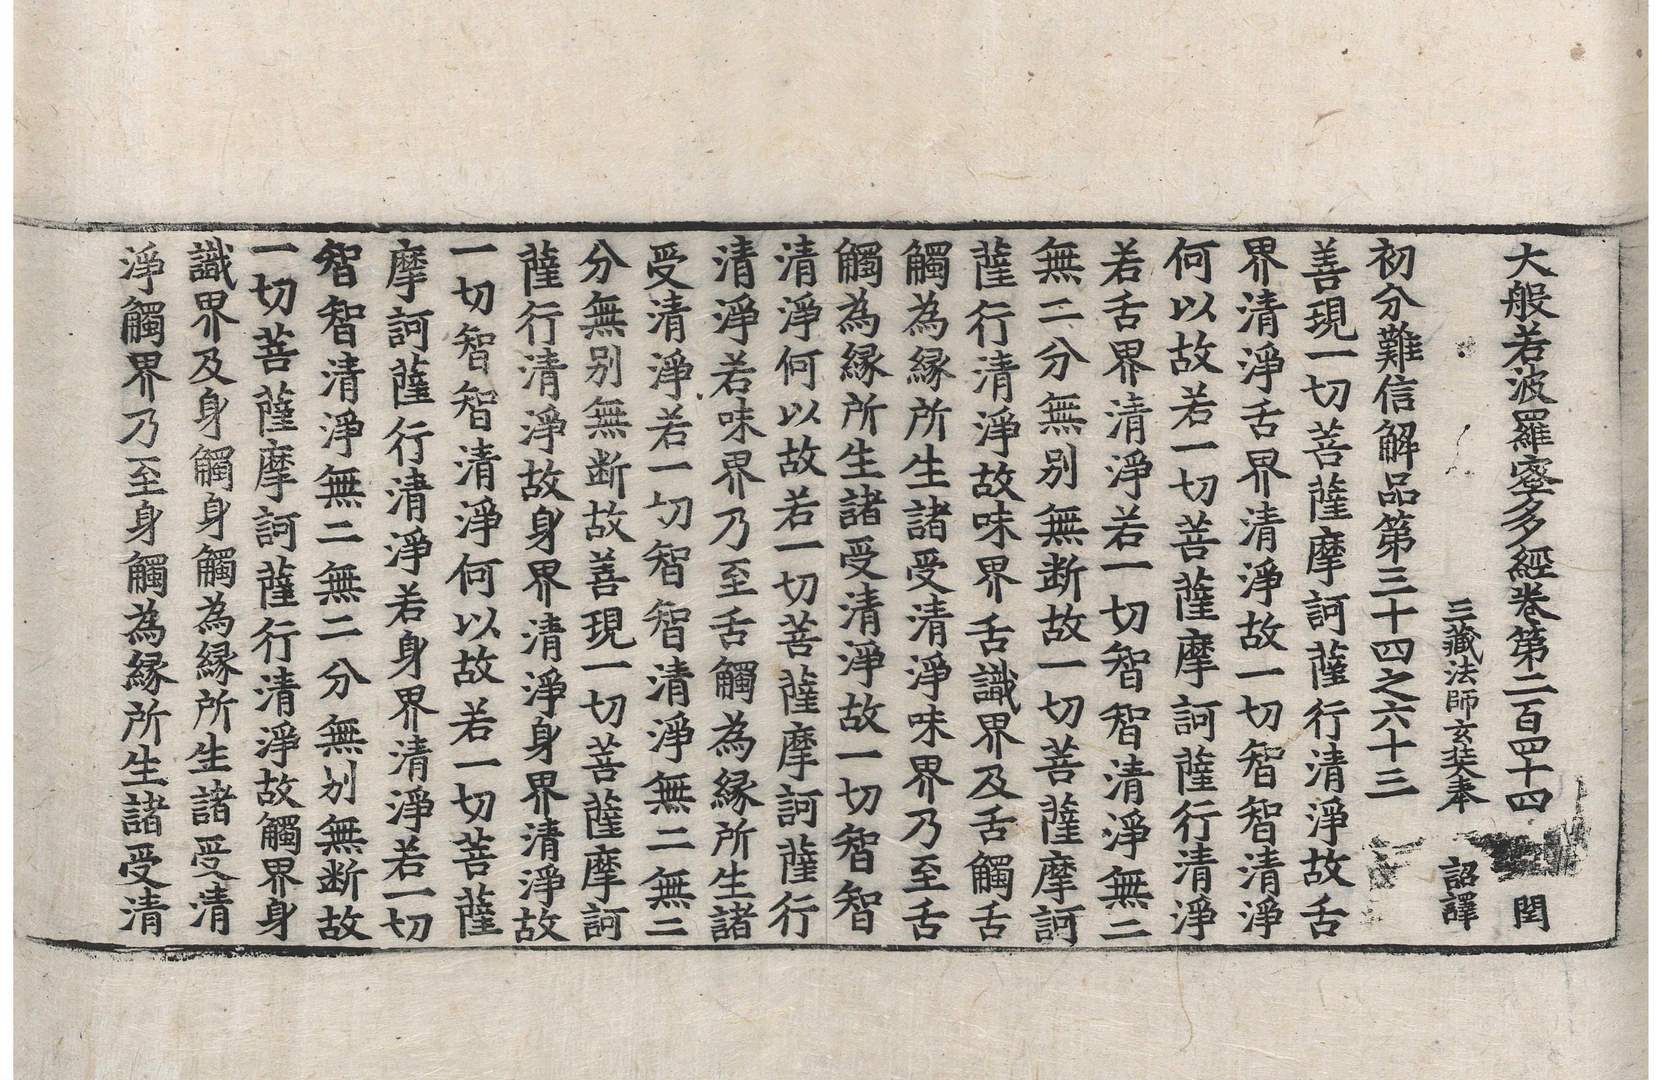 大般若波羅蜜多經卷第二百四十四 閏
三藏法師玄奘奉 詔譯
初分難信解品第三十四之六十三
善現一切菩薩摩訶薩行清淨故舌
界清淨舌界清淨故一切智智清淨
何以故若一切菩薩摩訶薩行清淨
若舌界清淨若一切智智清淨無二
無二分無别無断故一切菩薩摩訶
薩行清淨故味界舌識界及舌觸舌
觸為緣所生諸受清淨味界乃至舌
觸為緣所生諸受清淨故一切智智
清淨何以故若一切菩薩摩訶薩行
清淨若味界乃至舌觸為緣所生諸
受清淨若一切智智清淨無二無二
分無别無断故善現一切菩薩摩訶
薩行清淨故身界清淨身界清淨故
一切智智清淨何以故若一切菩薩
摩訶薩行清淨若身界清淨若一切
智智清淨無二無二分無别無断故
一切菩薩摩訶薩行清淨故觸界身
識界及身觸身觸為緣所生諸受清
淨觸界乃至身觸為緣所生諸受清